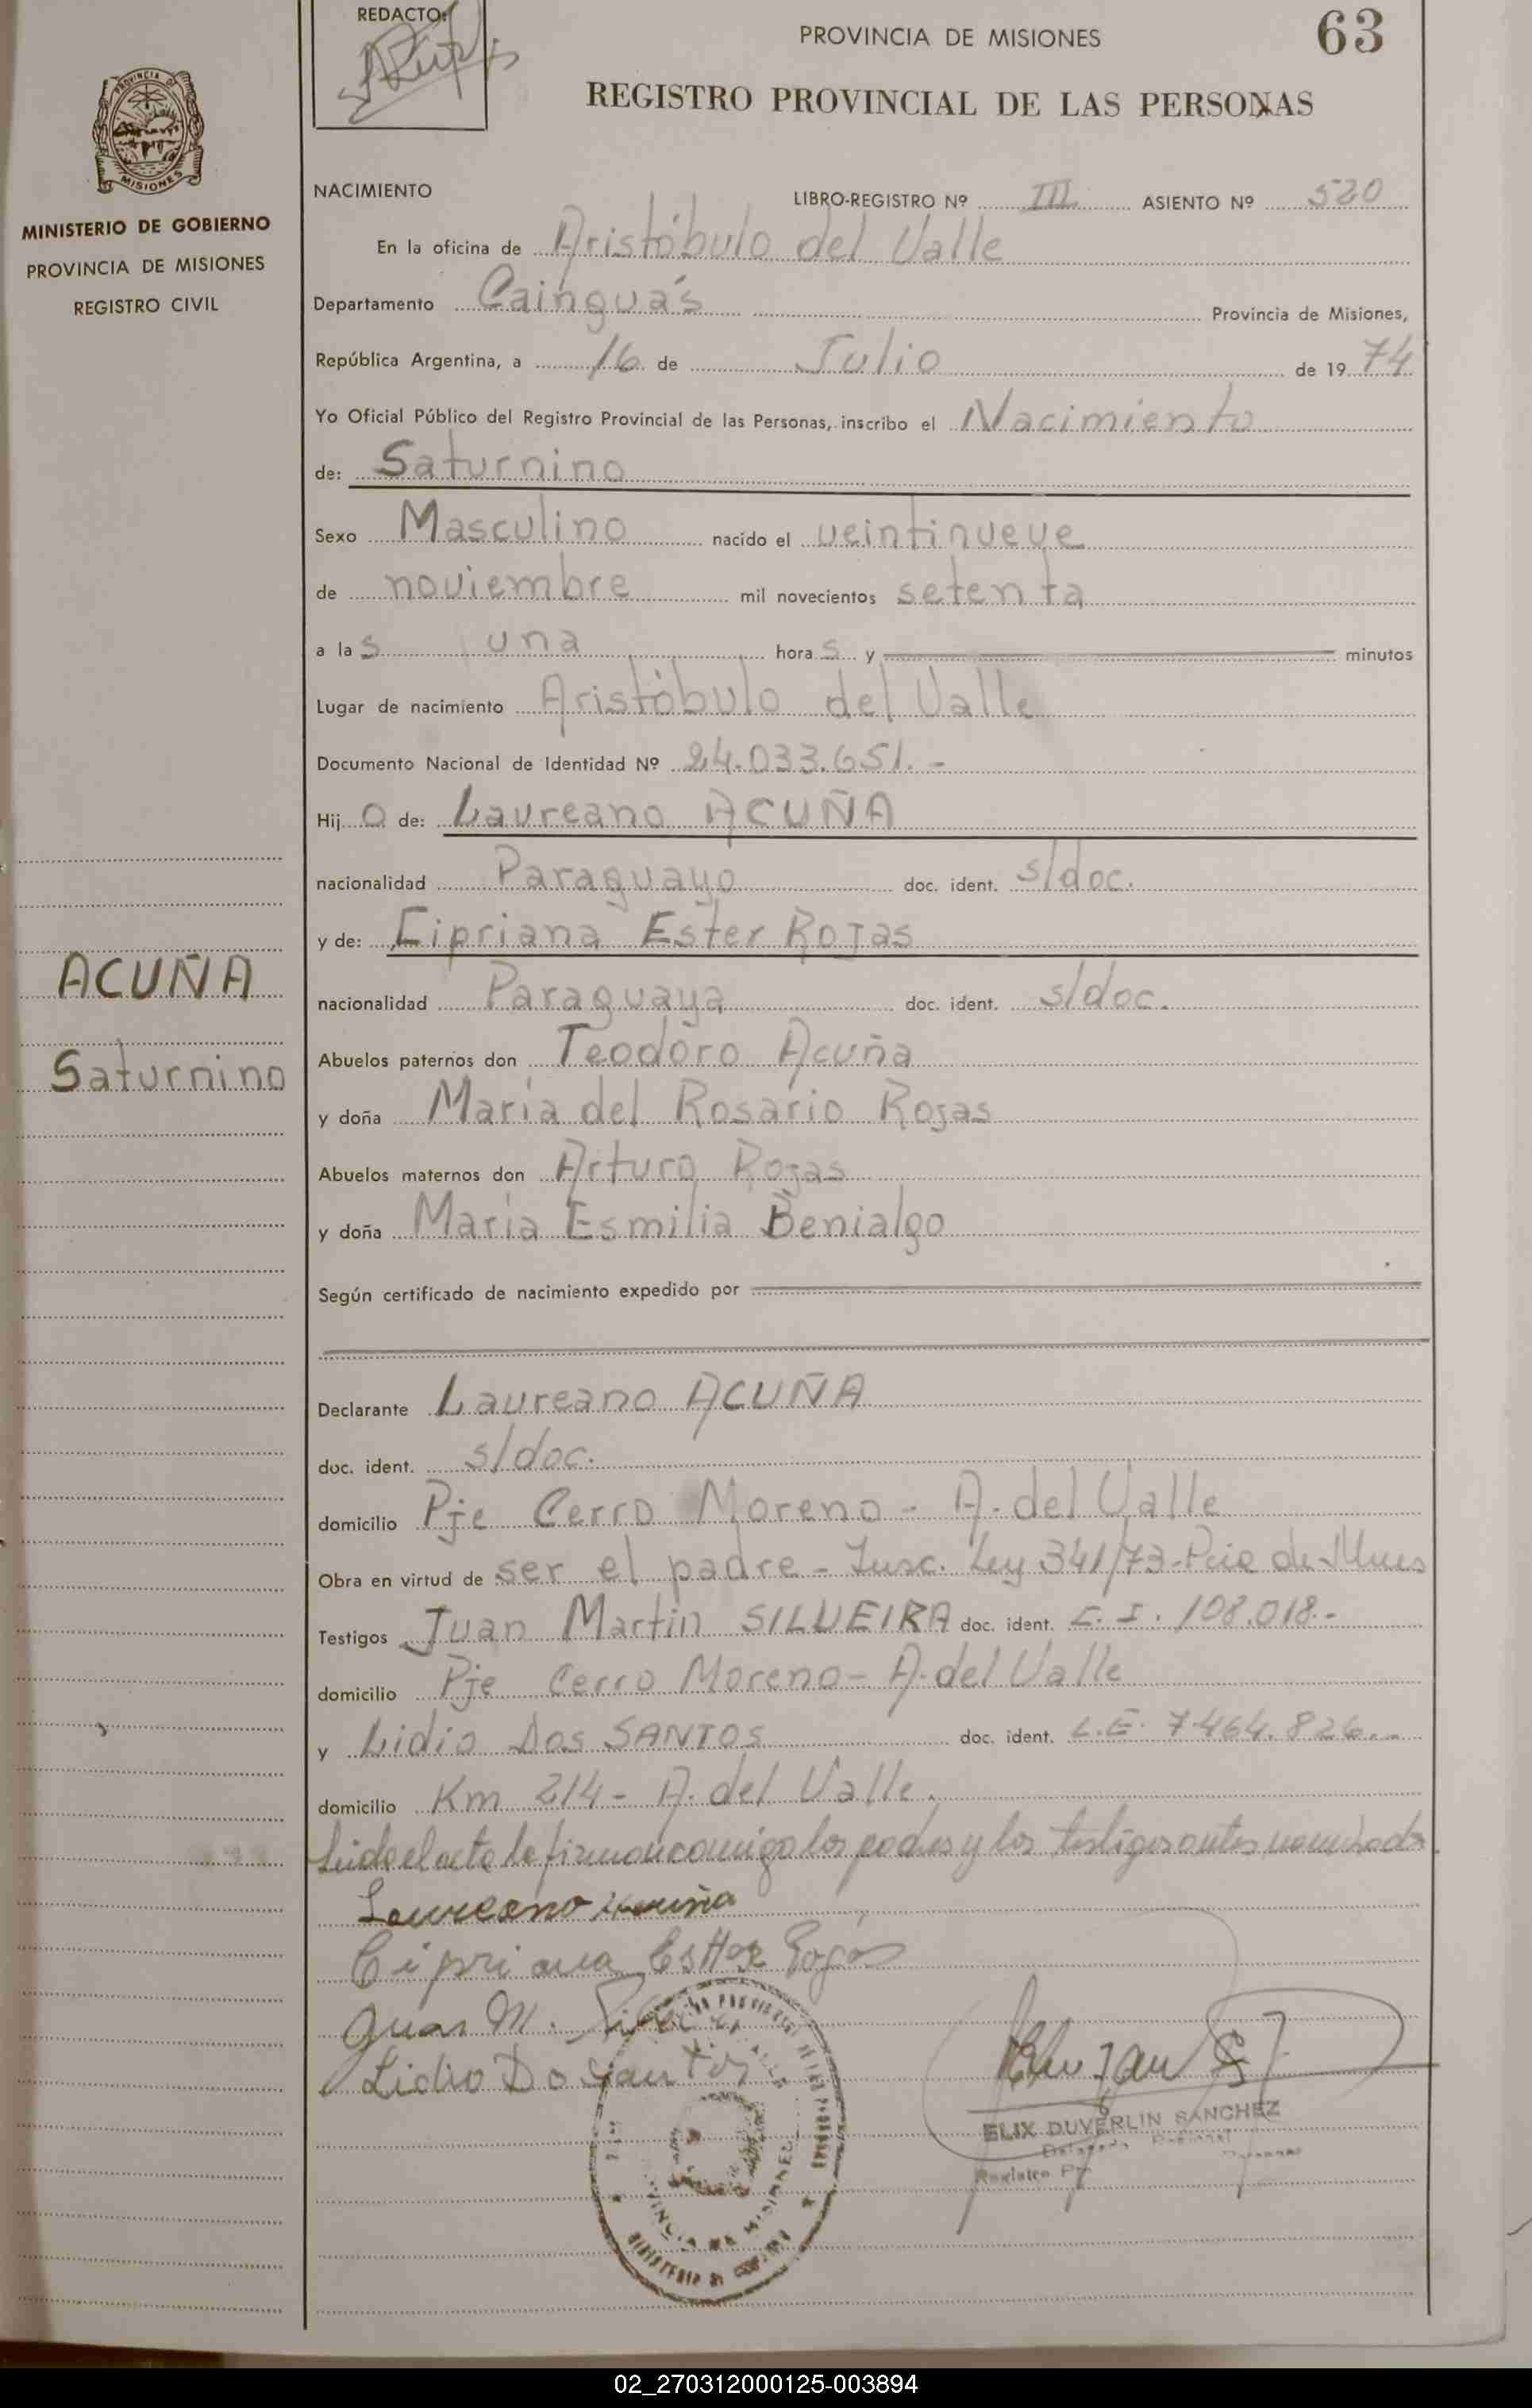 REDACTO:
PROVINCIA DE MISIONES
63
REGISTRO PROVINCIAL DE LAS PERSONAS
PROVINCIA DE
MISIONES
MINISTERIO DE GOBIERNO
PROVINCIA DE MISIONES
REGISTRO CIVIL
ACUÑA
Saturnino
NACIMIENTO LIBRO-REGISTRO Nº III ASIENTO Nº 520
En la oficina de Aristóbulo del Valle
Departamento Cainguás Provincia de Misiones,
República Argentina, a 16 de Julio de 1974
Yo Oficial Público del Registro Provincial de las Personas, inscribo el Nacimiento
de: Saturnino
Sexo Masculino nacido el veintinueve
de noviembre mil novecientos setenta
a las una horas y minutos
Lugar de nacimiento Aristóbulo del Valle
Documento Nacional de Identidad Nº 24.033.651.-
Hijo de: Laureano ACUÑA
nacionalidad Paraguayo doc. ident. s/doc.
y de: Cipriana Ester ROJAS
nacionalidad Paraguaya doc. ident. s/doc.
Abuelos paternos don Teodoro Acuña
y doña María del Rosario Rojas
Abuelos maternos don Arturo Rojas
y doña María Esmilia Benialgo
Según certificado de nacimiento expedido por
Declarante Laureano ACUÑA
doc. ident. s/doc.
domicilio Pje Cerro Moreno - A. del Valle
Obra en virtud de ser el padre - Insc. Ley 341/73 - Pcia de Mnes
Testigos Juan Martin SILVEIRA doc. ident. C. I. 108.018.-
domicilio Pje Cerro Moreno - A. del Valle
y Lidio Dos SANTOS doc. ident. L.E. 7.464.826.-
domicilio Km 214 - A. del Valle.
Leida el acta la firman conmigo los padres y los testigos antes nombrados.
Laureano Acuña
Cipriana Esther Rojas
Juan M.
Lidio Do Santos
ELIX DUVERLIN SANCHEZ
Registro
02_270312000125-003894